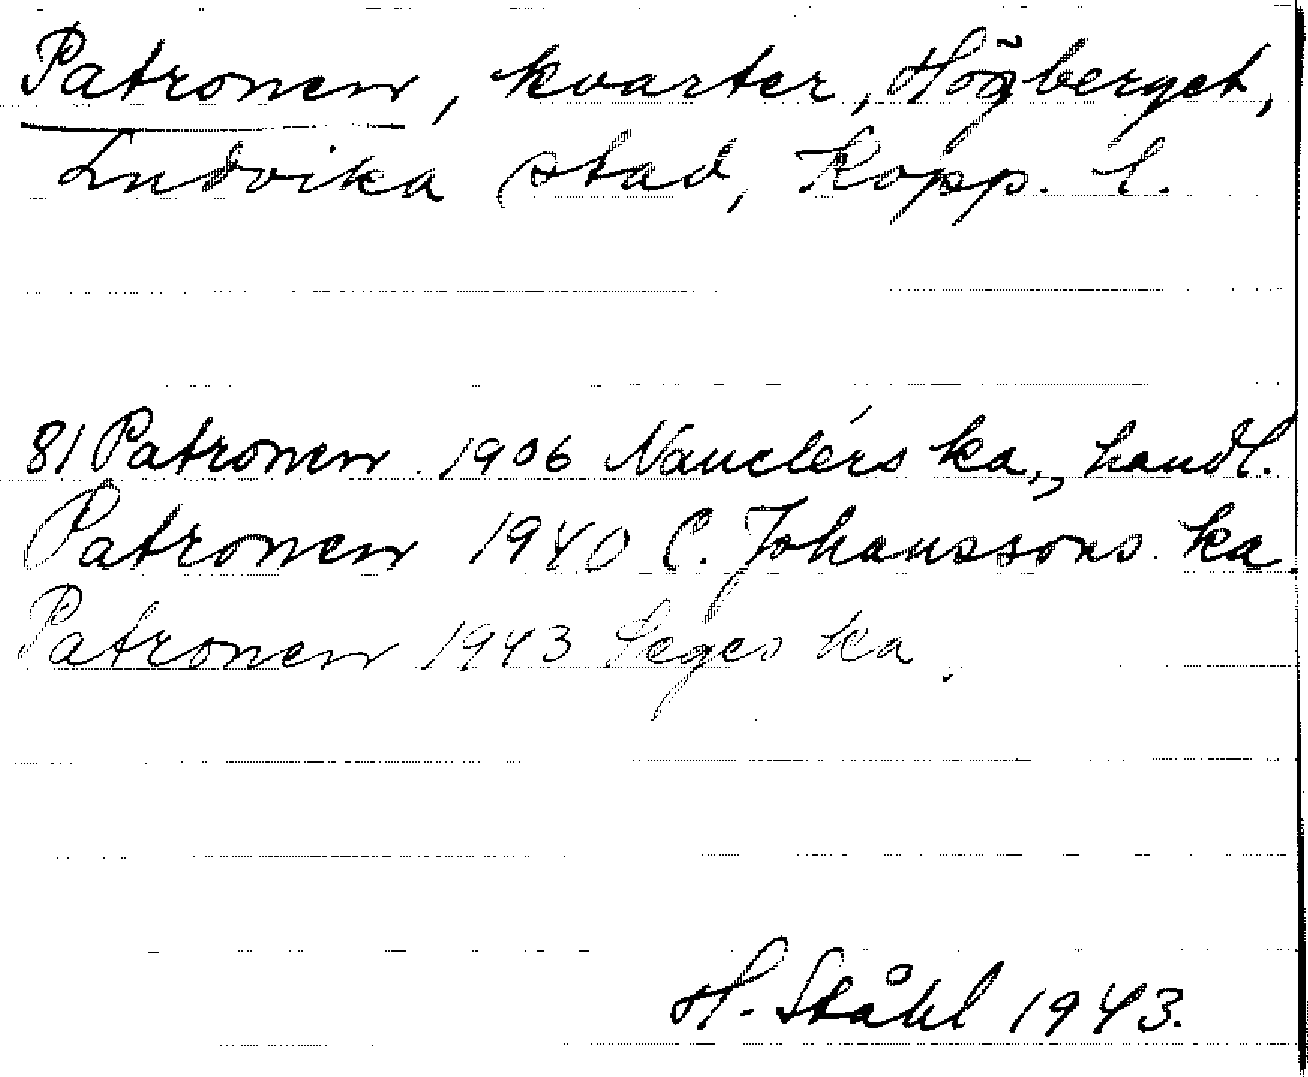 Patronen, kvarter, Högberget,
Ludvika stad, Kopp. l.
81 Patronen 1906 Nauclérs ka., handl.
Patronen 1940 C. Johanssons ka.
Patronen 1943 Seges ka.
H. Ståhl 1943.